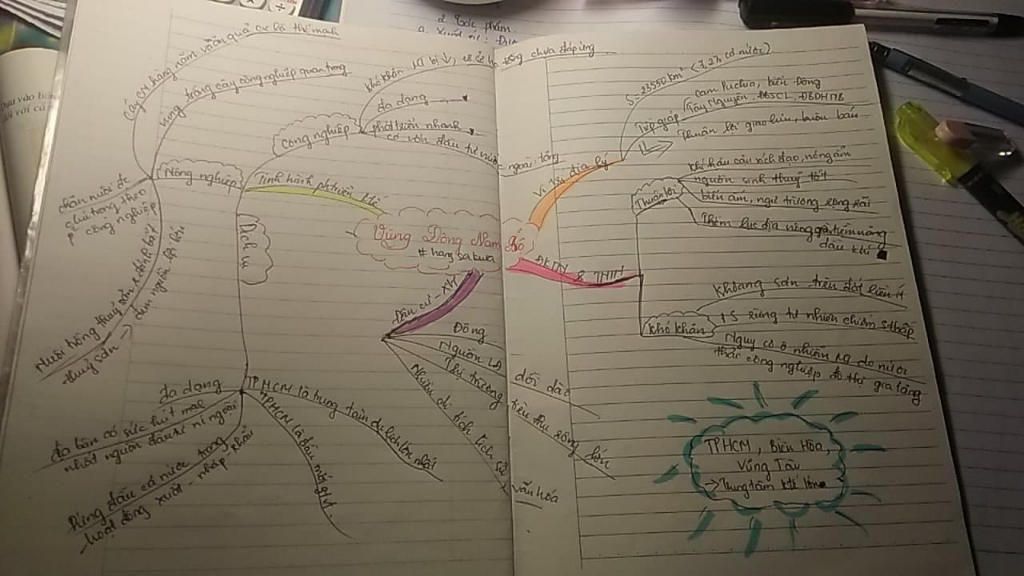 2. Tác phẩm.
a. Xuất xứ:
Cây CN hàng năm, cây ăn quả cx là thế mạnh
Vùng trồng cây công nghiệp quan trọng
chăn nuôi
chú trọng theo
công nghiệp
Nông nghiệp
Nuôi trồng thuỷ sản, đánh bắt
thuỷ sản →
đem nguồn lợi lớn
Công nghiệp
chưa đáp ứng
đa dạng
phát triển nhanh
có vốn đầu tư nước ngoài tăng
Tình hình phát triển
Dịch vụ
đa dạng
địa bàn có sức hút mạnh
nhất nguồn đầu tư nước ngoài
Đứng đầu cả nước trong
hoạt động xuất - nhập khẩu
TPHCM là trung tâm du lịch lớn nhất
TPHCM là đầu mối GTVT
Vùng Đông Nam Bộ
Dân cư - XH
Đông
Nguồn LĐ dồi dào
Thị trường tiêu thụ rộng lớn
Nhiều di tích lịch sử văn hóa
Vị trí địa lý
S: 23550 km² (7,2% cả nước)
Tiếp giáp
Campuchia, biển Đông
Tây Nguyên, ĐBSCL, DHNTB
Thuận lợi giao lưu, buôn bán
ĐKTN & TNTN
Thuận lợi
Khí hậu cận xích đạo, nóng ẩm
nguồn sinh thuỷ tốt
biển ấm, ngư trường rộng lớn
Thềm lục địa nông, giàu tiềm năng
dầu khí
Khó khăn
Khoáng sản trên đất liền ít
rừng tự nhiên chiếm S thấp
Nguy cơ ô nhiễm
thải công nghiệp, đô thị gia tăng
TPHCM, Biên Hòa,
Vũng Tàu
→ Trung tâm KT lớn